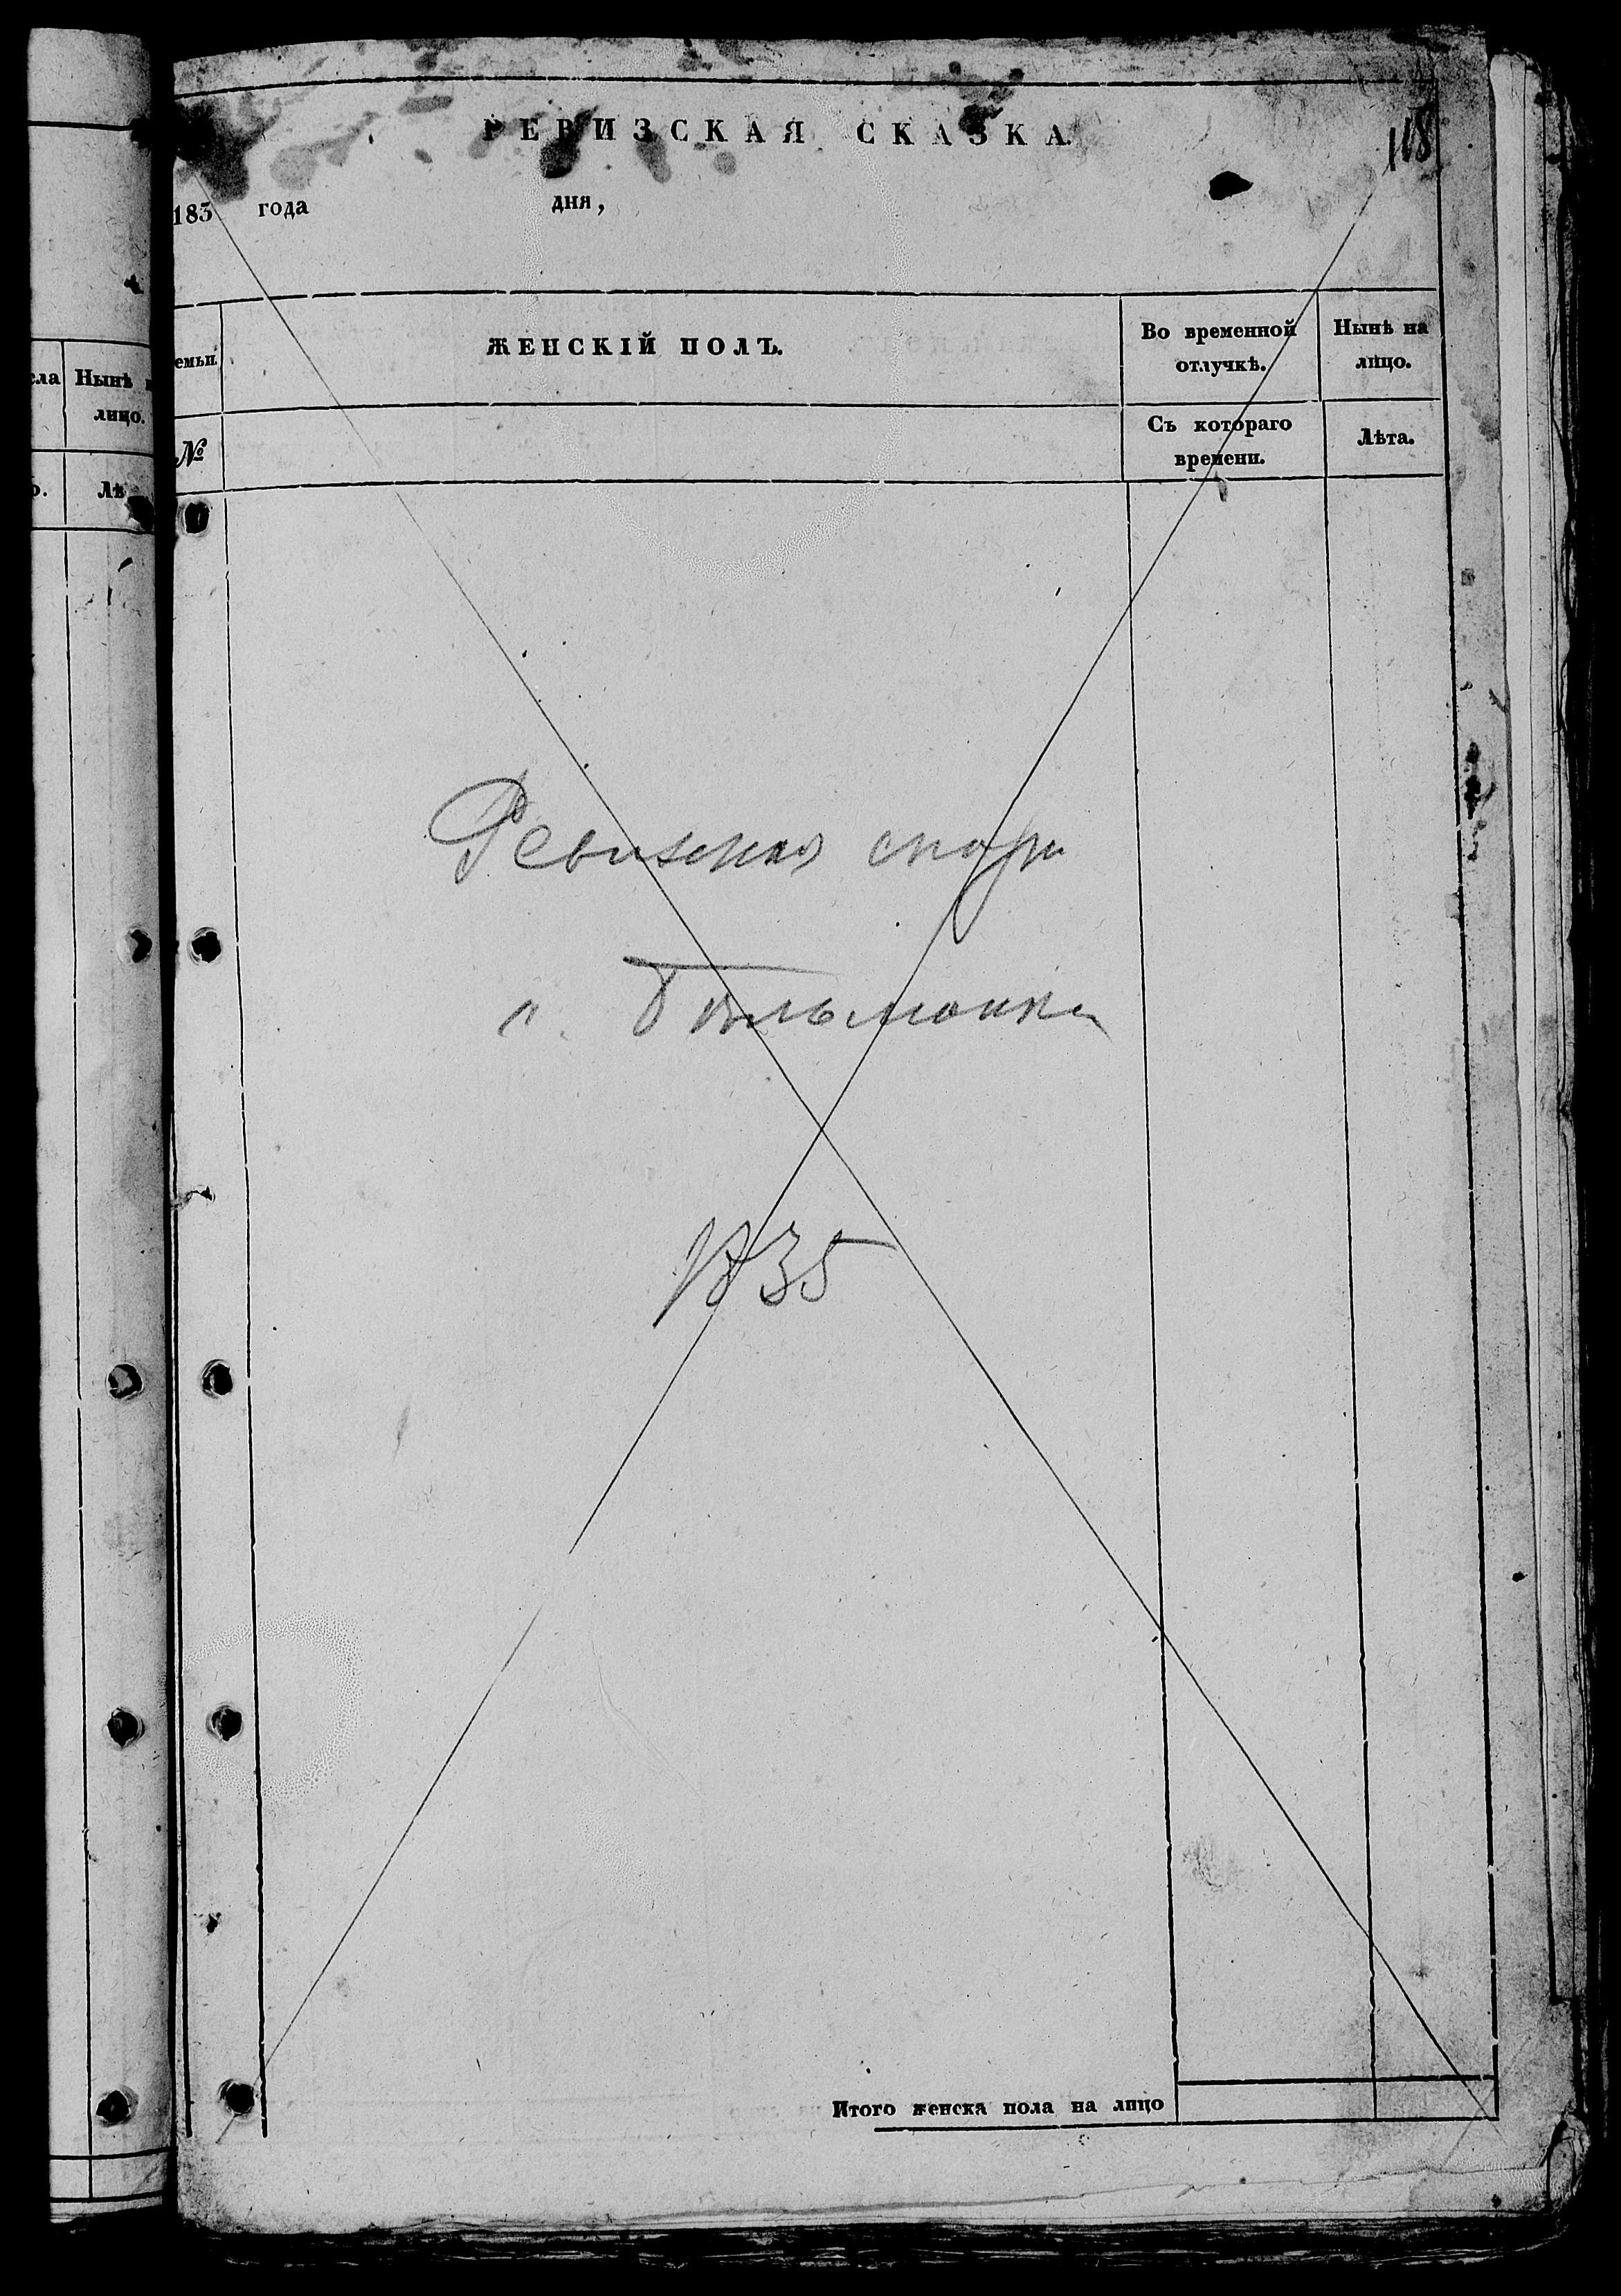 118
РЕВИЗСКАЯ СКАЗКА.
183 года дня,
емьи. ЖЕНСКІЙ ПОЛЪ. Во временной отлучкѣ. Нынѣ на лицо.
№ Съ котораго времени. Лѣта.
сла Нынѣ
лицо.
Лѣ
Ревизская
1835
Итого женска пола на лицо